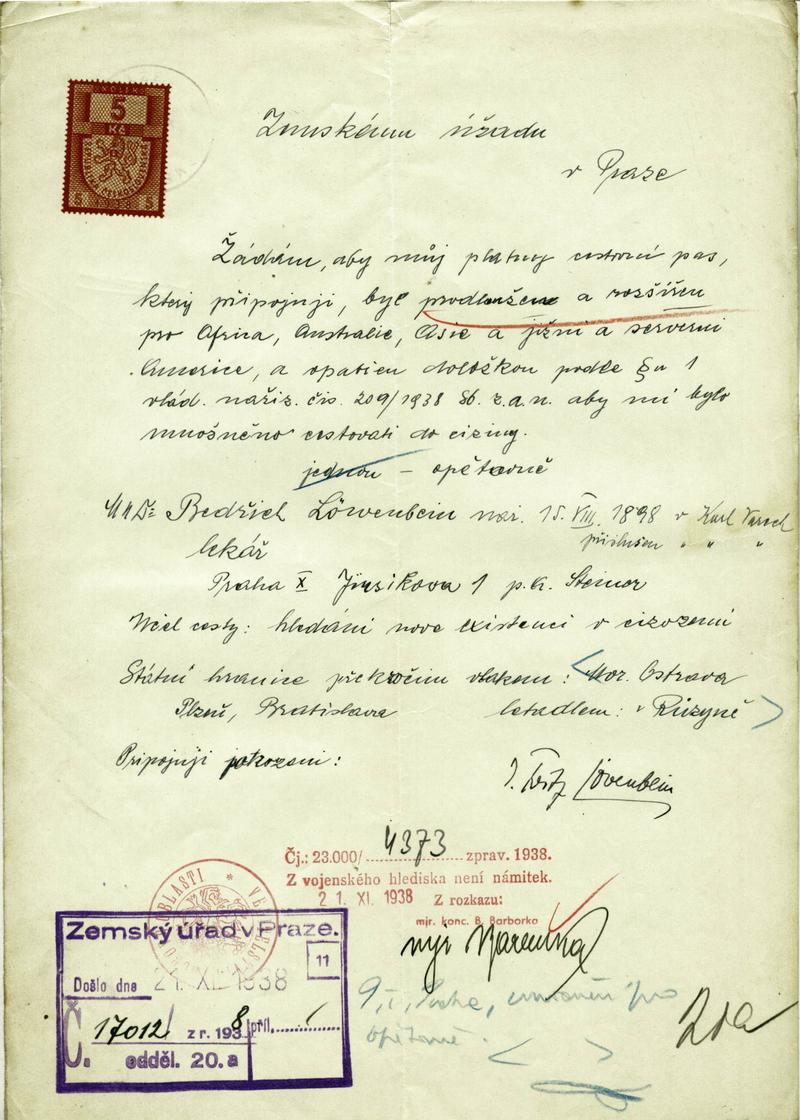 KOLEK
5
Kč
5 5
Zemskému úřadu
v Praze
Žádám, aby můj platný cestovní pas,
který připojuji, byl prodloužen a rozšířen
pro Africa, Australie, Asie a jižní a severní
Americe, a opatřen doložkou podle §u 1
vlád. nařiz. čís. 209/1938 Sb. z.a.n. aby mi bylo
umožněno cestovati do ciziny.
jednou – opětovně
MUDr Bedřich Löwenbein nar. 15. VIII. 1898 v Karl Varech
lékář příslušen " " "
Praha X Jirsikova 1 p.A. Steiner
Účel cesty: hledání nove existenci v cizozemí
Státní hranice překročím vlakem: Mor. Ostrava
Plzeň, Bratislava letadlem: v Růzyně
Připojuji potvrzeni:
Löwenbein
Čj.: 23.000/ 4373 zprav. 1938.
Z vojenského hlediska není námitek.
21. XI. 1938 Z rozkazu:
mjr. konc. B. Barborka
Zemský úřad v Praze.
11
Došlo dne 21. XI. 1938
Č. 17012/ z r. 1938 příl. 1
odděl. 20.a
opětovně.